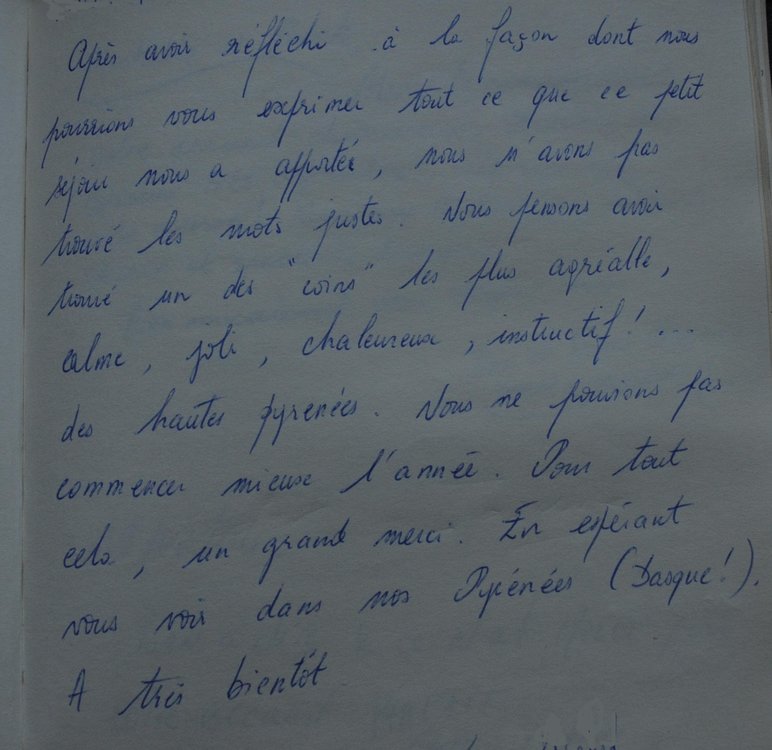 Après avoir réfléchi à la façon dont nous
pourrions vous exprimer tout ce que ce petit
séjour nous a apportée, nous n'avons pas
trouvé les mots justes. Nous pensons avoir
trouvé un des "coins" les plus agréable,
calme, joli, chaleureux, instructif!...
des hautes pyrenées. Nous ne pouvions pas
commencer mieux l'année. Pour tout
cela, un grand merci. En espérant
vous voir dans nos Pyrénées (Basque!).
A très bientôt